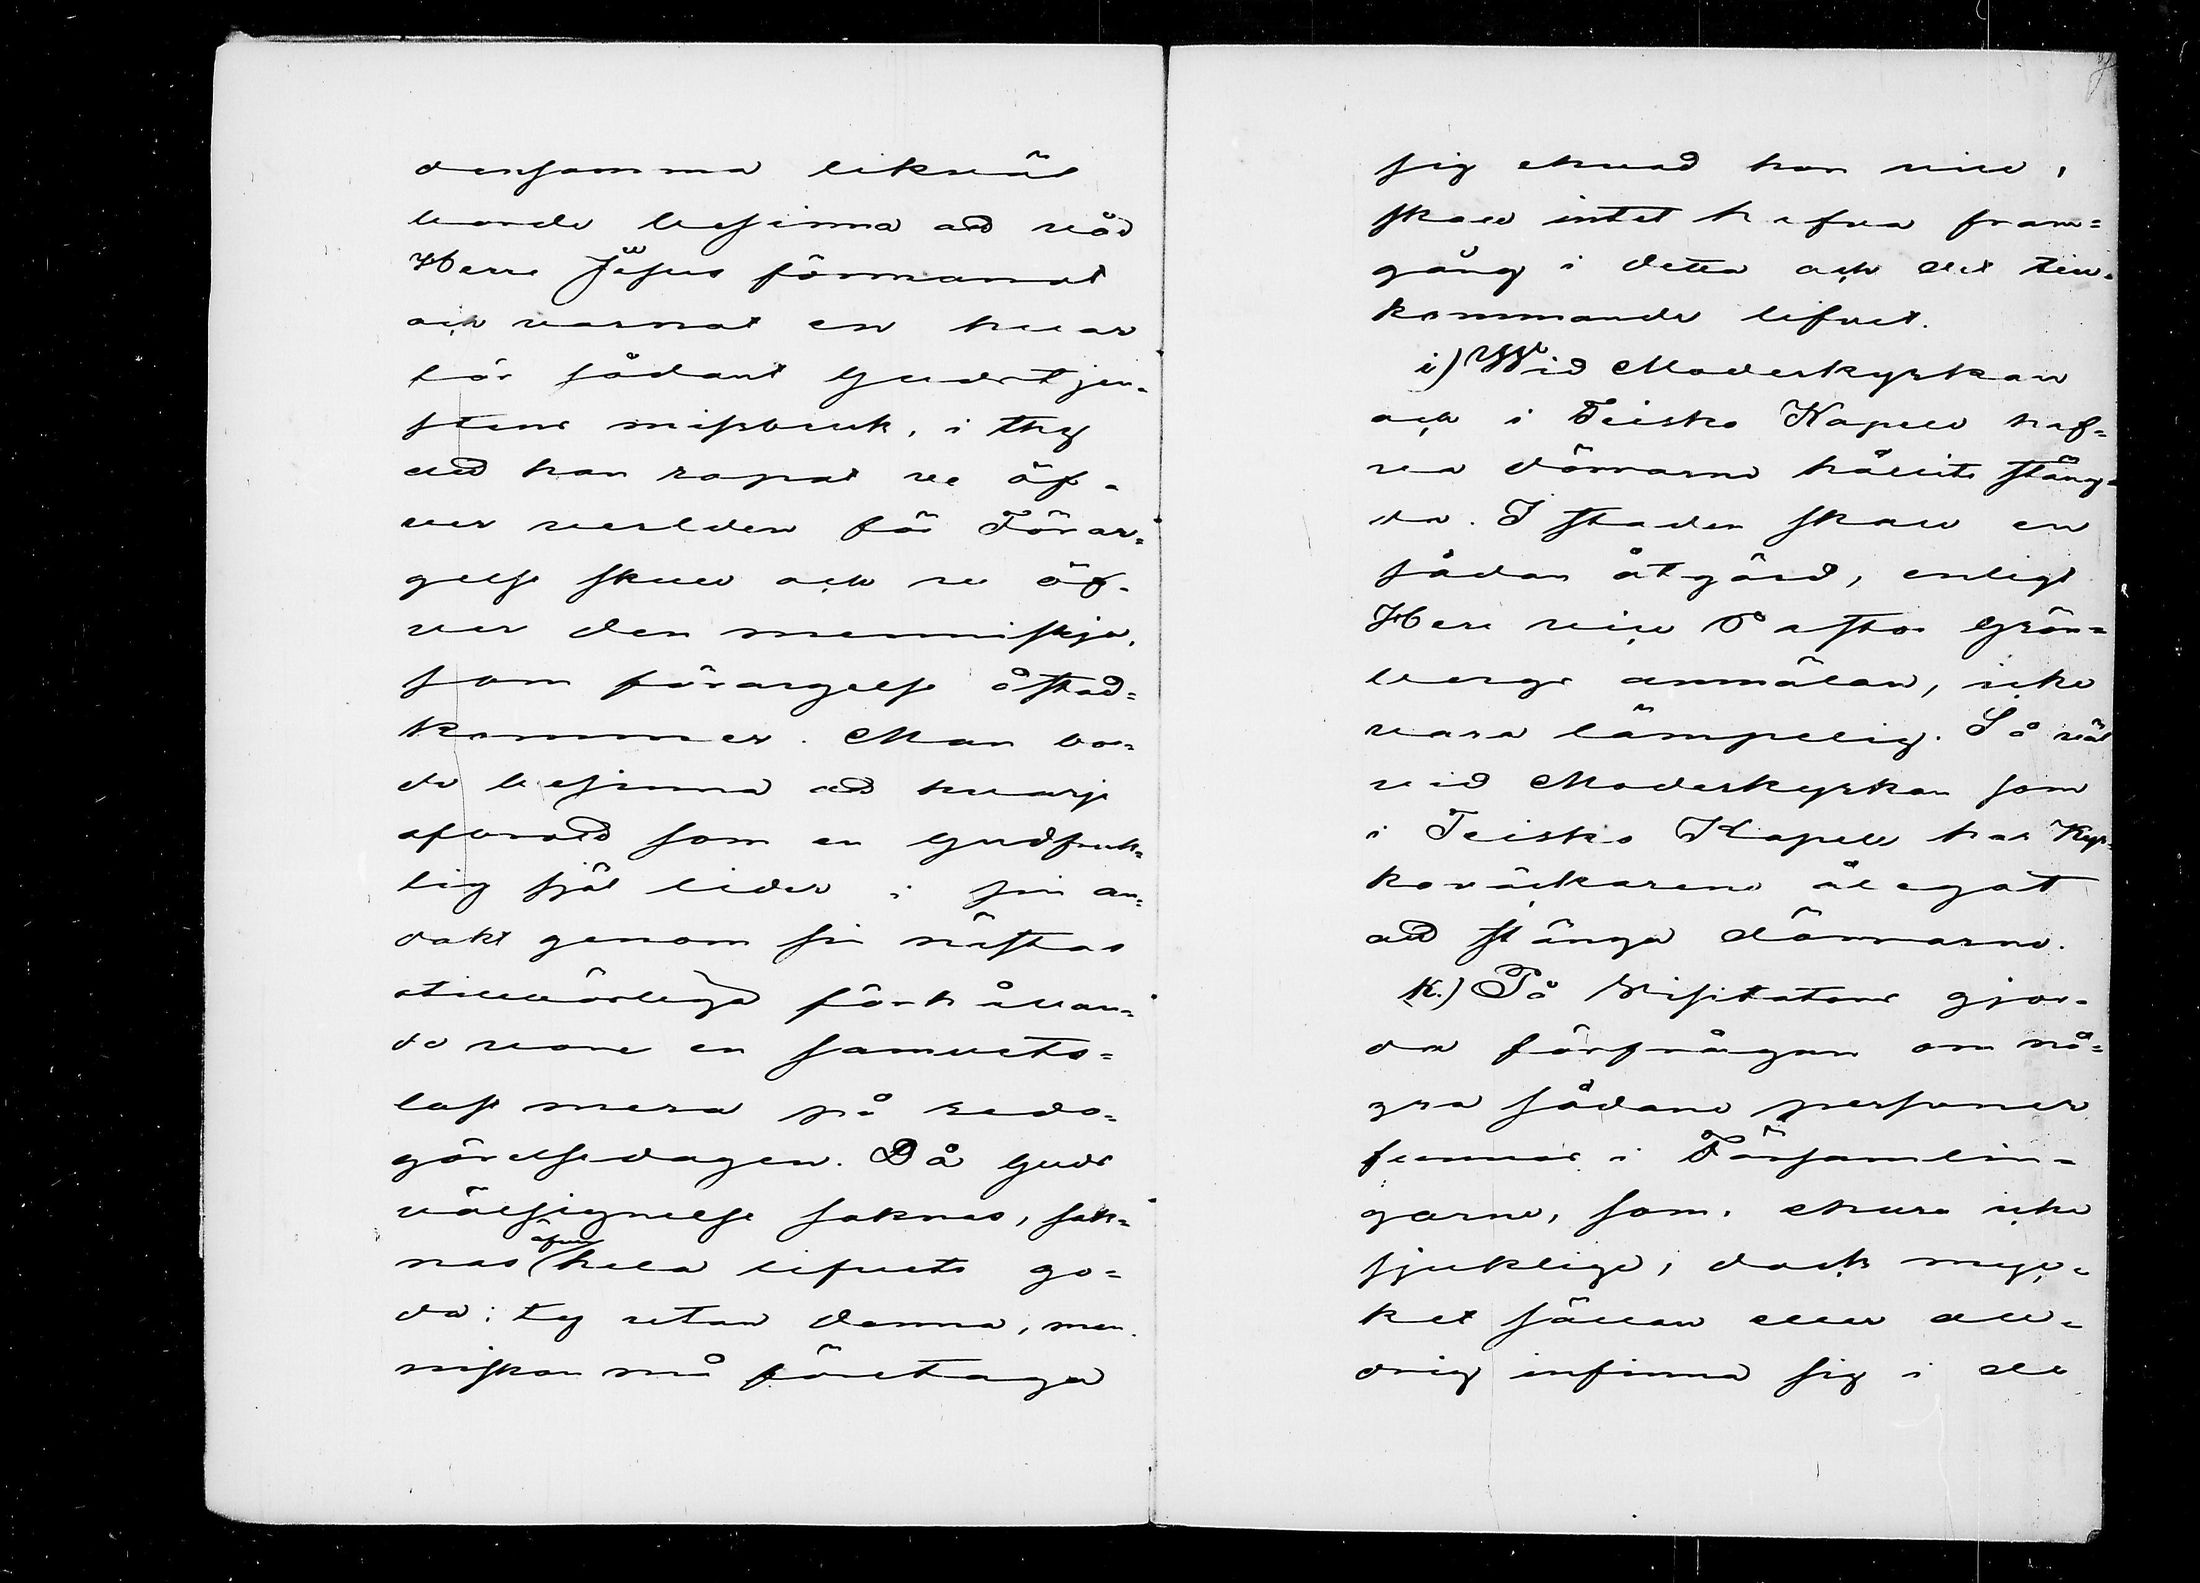 densamma likväl
borde besinna att vår
Herre Jesus förmanat
och varnat en hvar
för sådant Gudstjen=
stens missbruk, i thy
att han ropat ve öf=
ver verlden för Förar=
gelse skull och ve öf=
ver den menniskja,
som förargelse åstad=
kommer. Man bor=
de besinna att hvarje
afbrott som en Gudfruk=
tig själ lider i sin an=
dakt genom sin nästas
otillbörliga förhållan=
de vore en samvets=
last mera på redo=
görelsedagen. Då Guds
välsignelse saknas, sak=
nas äfven hela lifvets go=
da; ty utan denna, men=
niskan må företaga
sig ehvad hon vill,
skall intet hafva fram=
gång i detta och det till=
kommande lifvet.
i) Wid Moderkyrkan
och i Teisko Kapell haf=
va dörrarne hållits stäng=
da. I staden skall en
sådan åtgärd, enligt
Herr vice Pastor Grön=
bergs anmälan, icke
vara lämpelig. Så väl
vid Moderkyrkan som
i Teisko Kapell har Kyr=
koväckarene ålegat
att stänga dörrarne.
k.) På Visitators gjor=
da förfrågan om nå=
gra sådane personer
funnes i Församlin=
garne, som, ehuru icke
sjuklige, dock myc=
ket sällan eller all=
drig infinna sig i de